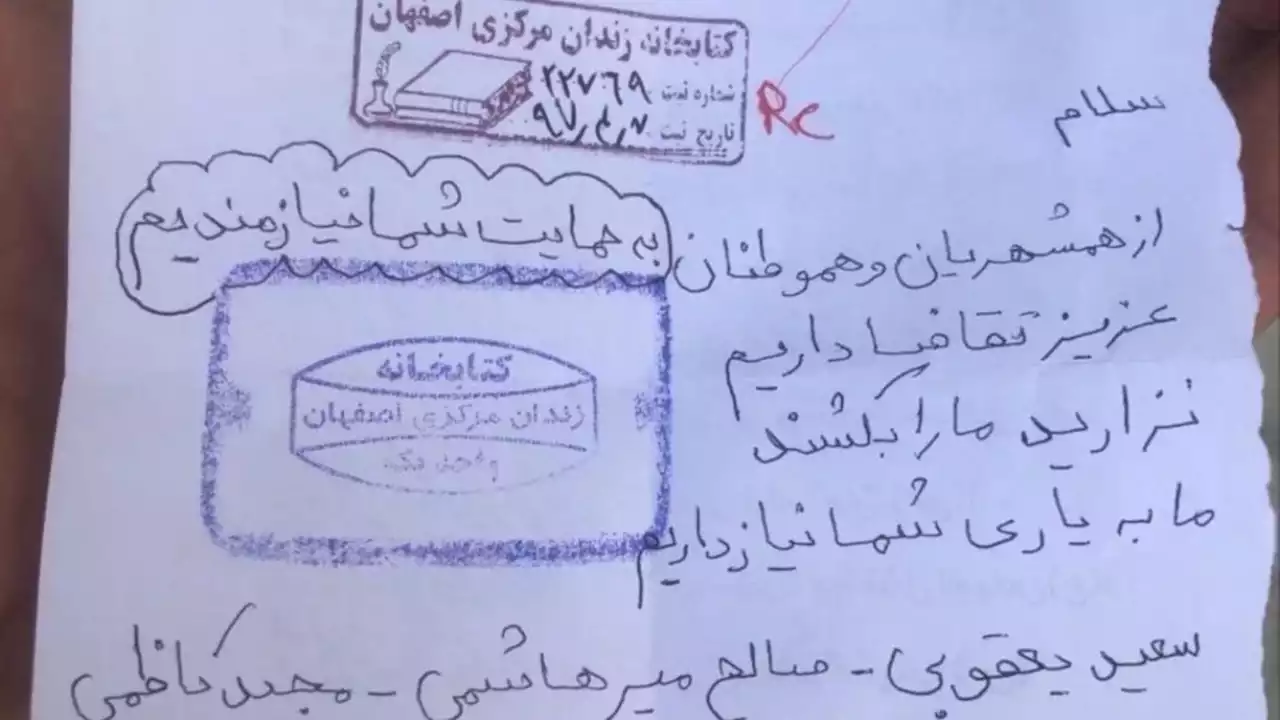 کتابخانه زندان مرکزی اصفهان
شماره ثبت ۲۲۷۶۹
تاریخ ثبت
Rc
سلام
از همشهریان و هموطنان به حمایت شما نیازمندیم
عزیز تقاضا داریم
نزارید ما را بکشند
ما به یاری شما نیاز داریم
کتابخانه
زندان مرکزی اصفهان
واحد یک
سعید یعقوبی - صالح میرهاشمی - مجید کاظمی